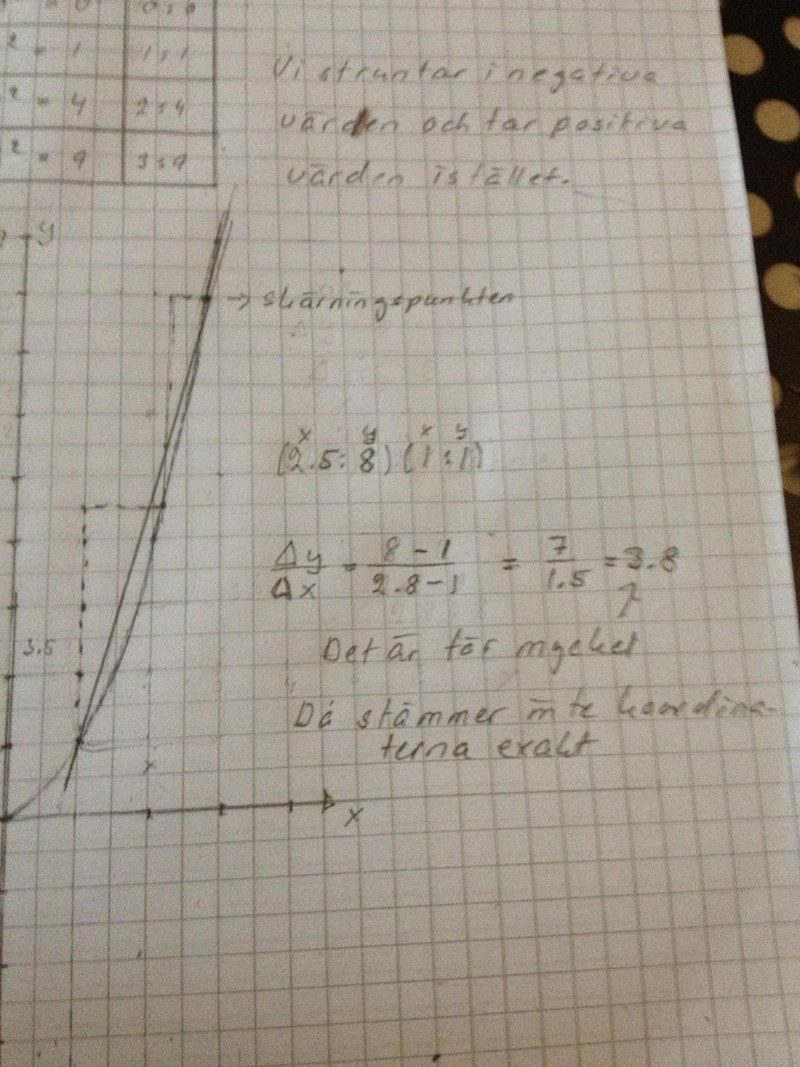 ² = 0 0 : 0
² = 1 1 : 1
² = 4 2 : 4
² = 9 3 : 9
Vi struntar i negativa
värden och tar positiva
värden istället.
y
→ skärningspunkten
x y x y
(2.5 : 8) (1 : 1)
Δy/Δx = 8 - 1/2.8 - 1 = 7/1.5 = 3.8
3.5
Det är för mycket
Då stämmer inte koordina-
terna exakt
x
x